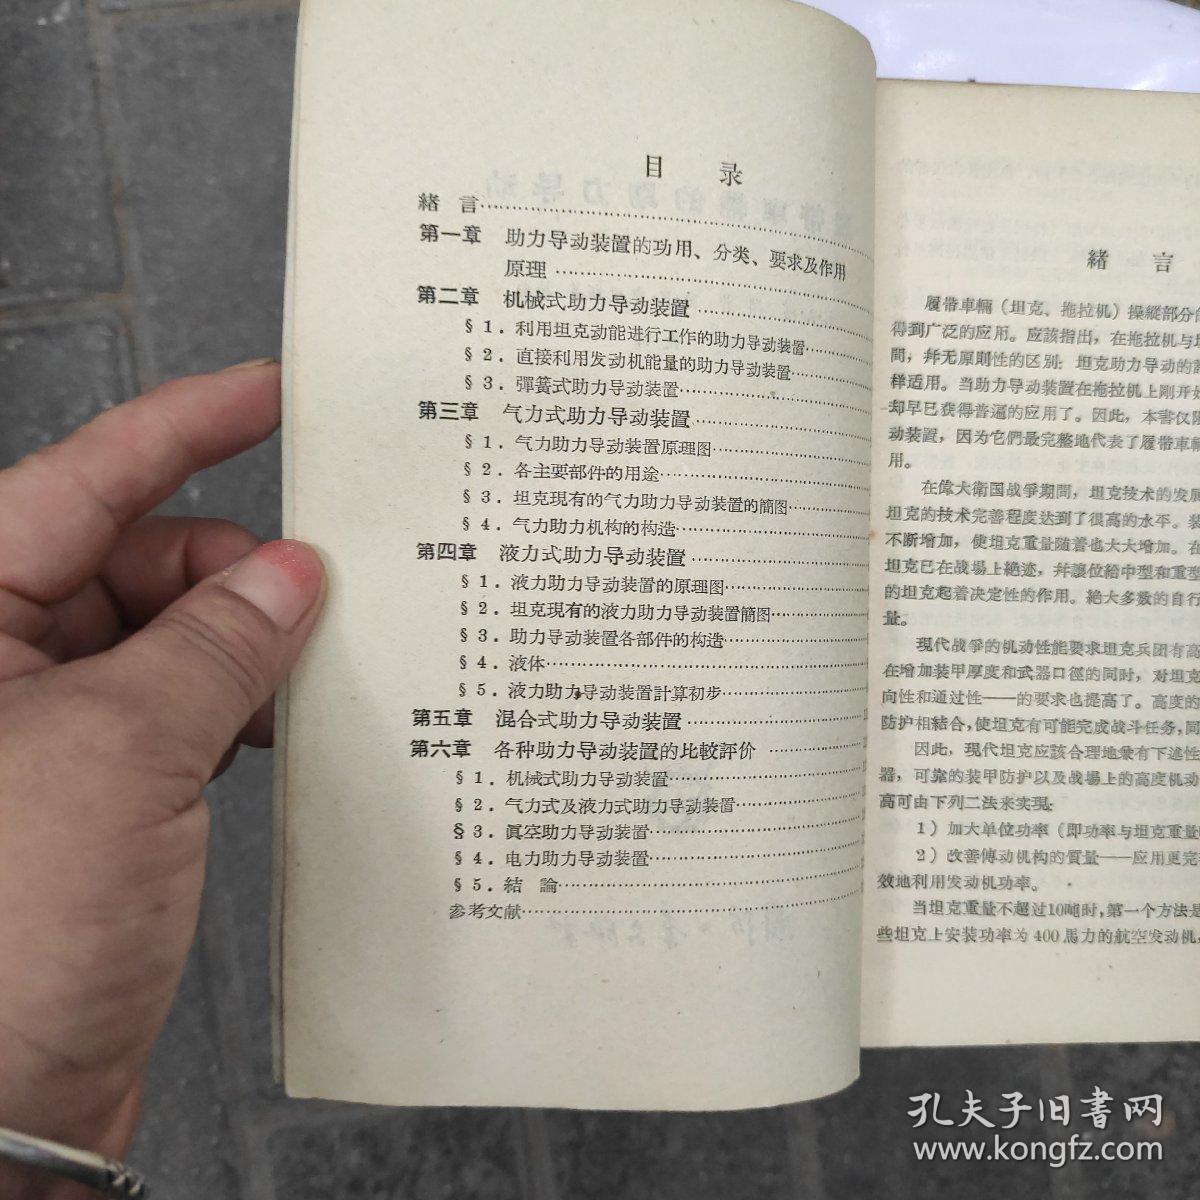 目 录
緒 言
第一章 助力导动装置的功用、分类、要求及作用
原理
第二章 机械式助力导动装置
§ 1. 利用坦克动能进行工作的助力导动装置
§ 2. 直接利用发动机能量的助力导动装置
§ 3. 彈簧式助力导动装置
第三章 气力式助力导动装置
§ 1. 气力助力导动装置原理图
§ 2. 各主要部件的用途
§ 3. 坦克現有的气力助力导动装置的簡图
§ 4. 气力助力机构的构造
第四章 液力式助力导动装置
§ 1. 液力助力导动装置的原理图
§ 2. 坦克現有的液力助力导动装置簡图
§ 3. 助力导动装置各部件的构造
§ 4. 液体
§ 5. 液力助力导动装置計算初步
第五章 混合式助力导动装置
第六章 各种助力导动装置的比較評价
§ 1. 机械式助力导动装置
§ 2. 气力式及液力式助力导动装置
§ 3. 眞空助力导动装置
§ 4. 电力助力导动装置
§ 5. 結 論
参考文献
緒 言
履带車輛（坦克、拖拉机）操縱部分
得到广泛的应用。应該指出，在拖拉机与
間，幷无原則性的区别：坦克助力导动的
样适用。当助力导动装置在拖拉机上剛开
却早已获得普遍的应用了。因此，本書仅
动装置，因为它們最完整地代表了履带車輛
用。
在偉大衛国战爭期間，坦克技术的发展
坦克的技术完善程度达到了很高的水平。
不断增加，使坦克重量随着也大大增加。在
坦克已在战場上絶迹，幷讓位給中型和重型
的坦克起着决定性的作用。絶大多数的自行
量。
現代战爭的机动性能要求坦克兵团有高
在增加装甲厚度和武器口徑的同时，对坦克
向性和通过性——的要求也提高了。高度的
防护相結合，使坦克有可能完成战斗任务，同
因此，現代坦克应該合理地兼有下述性
器，可靠的装甲防护以及战場上的高度机动
高可由下列二法来实現：
1）加大单位功率（即功率与坦克重量
2）改善傳动机构的質量——应用更完
效地利用发动机功率。
当坦克重量不超过10吨时，第一个方法是
些坦克上安装功率为400馬力的航空发动机，
孔夫子旧书网
www.kongfz.com